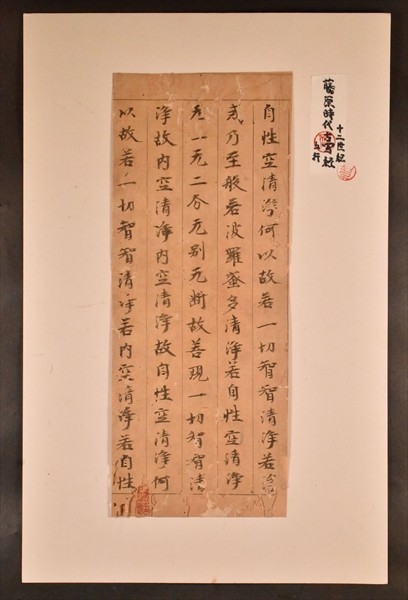 十二世紀
五行
藤原時代古写経
自性空清淨何以故若一切智智清淨若淨
戒乃至般若波羅蜜多清淨若自性空清淨
无二无二分无別无斷故善現一切智智清
淨故内空清淨内空清淨故自性空清淨何
以故若一切智智清淨若内空清淨若自性